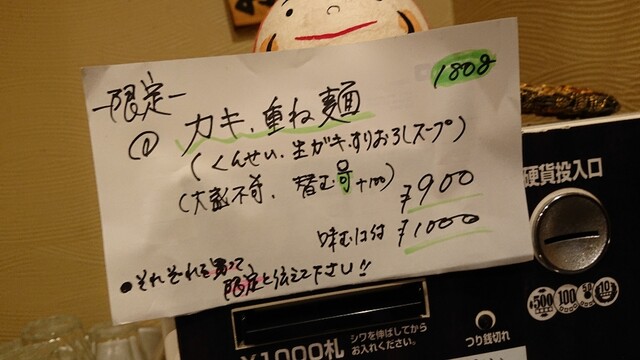 180g
ー限定ー
@ カキ、重ね麺
(くんせい、生ガキ、すりおろしスープ)
(大盛不可、替む可+100) ¥900
味むは付 ¥1000
●それぞれを買って
限定と伝えて下さい!!
硬貨投入口
500 100 50 10
¥1000札
シワを伸ばしてから
お入れください。
つり銭切れ